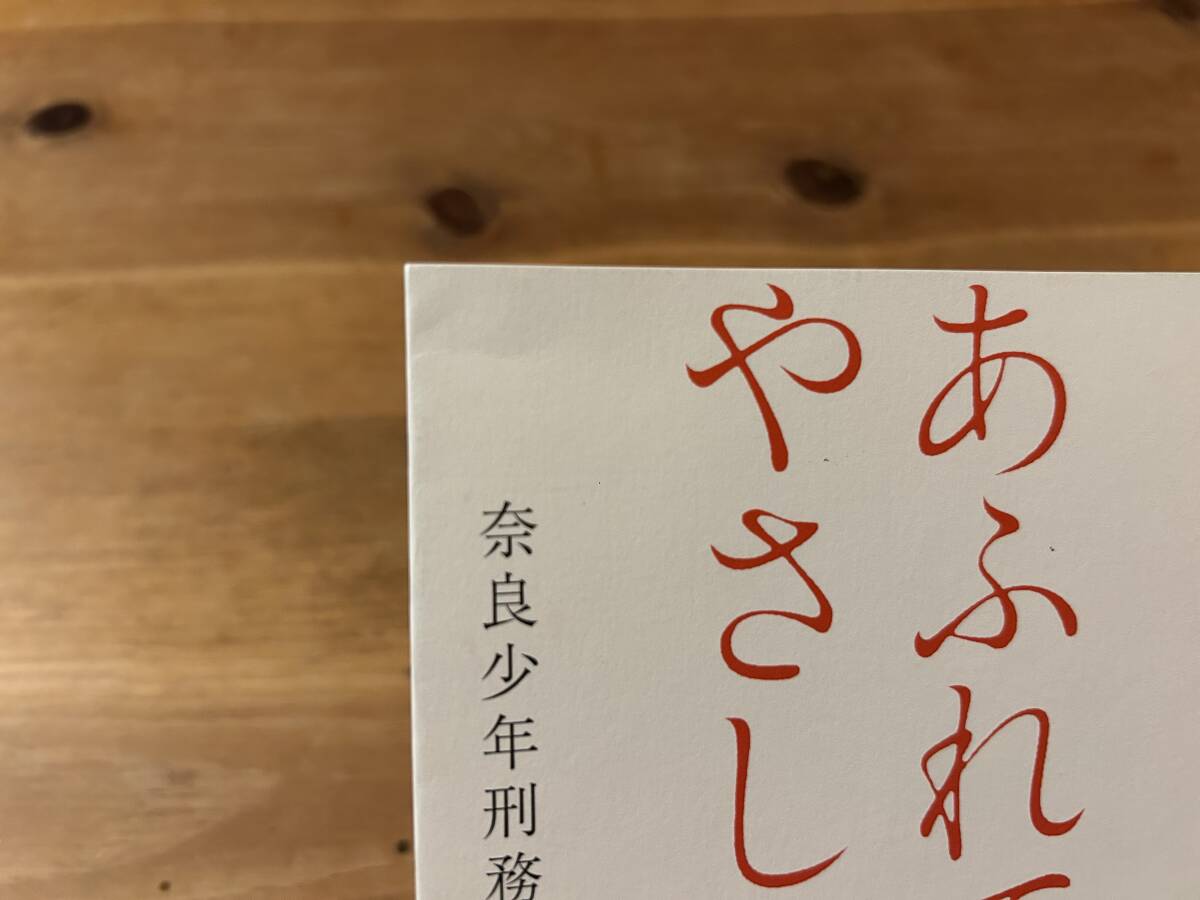 あふれ
やさし
奈良少年刑務